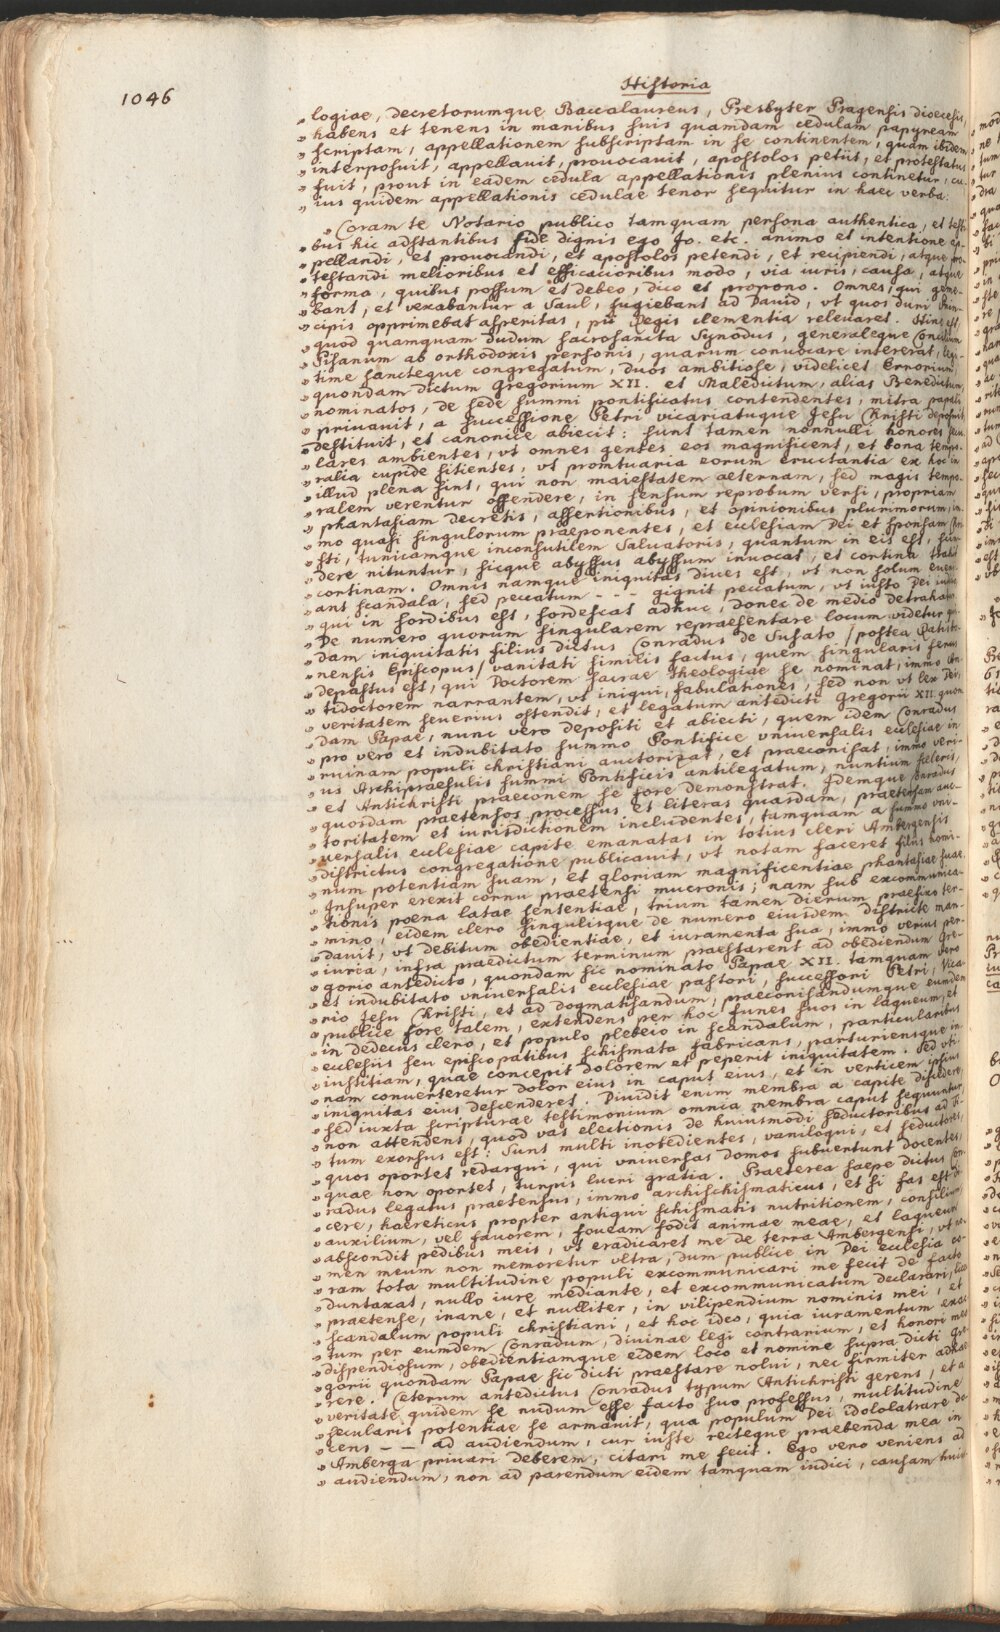 1046
Historia
„ logiae, decretorumque Baccalaureus, Presbyter Pragensis dioecesis,
„ habens et tenens in manibus suis quamdam cedulam papyream
„ scriptam, appellationem subscriptam in se continentem, quam ibidem
„ interposuit, appellauit, prouocauit, apostolos petiit, et protestatus
„ fuit, prout in eadem cedula appellationis plenius continetur, cu-
„ ius quidem appellationis cedulae tenor sequitur in haec verba.
„ Coram te Notario publico tamquam persona authentica, et testi-
„ bus hic adstantibus fide dignis ego Jo. etc. animo et intentione ap-
„ pellandi, et prouocandi, et apostolos petendi, et recipiendi, atque pro-
„ testandi melioribus et efficacioribus modo, via iuris, causa, atque
„ forma, quibus possum et debeo, dico et propono. Omnes, qui geme-
„ bant, et vexabantur a Saul, fugiebant ad Dauid, vt quos duri Prin-
„ cipis opprimebat asperitas, pii Regis clementia releuaret. Hinc est,
„ quod quamquam dudum sacrosancta Synodus, generaleque Concilium
„ Pisanum ab orthodoxis personis, quarum conuocare intererat, legi-
„ time sancteque congregatum, duos ambitiose, videlicet Errorium
„ quondam dictum Gregorium XII. et Maledictum, alias Benedictum
„ nominatos, de sede summi pontificatus contendentes, mitra papali
„ priuauit, a successione Petri vicariatuque Jesu Christi deposuit
„ destituit, et canonice abiecit: sunt tamen nonnulli honores secu-
„ lares ambientes, vt omnes gentes eos magnificent, et bona tempo-
„ ralia cupide sitientes, vt promtuaria eorum eructantia ex hoc in
„ illud plena sint, qui non maiestatem aeternam, sed magis tempo-
„ ralem verentur offendere, in sensum reprobum versi, propriam
„ phantasiam decretis, assertionibus, et opinionibus plurimorum, im-
„ mo quasi singulorum praeponentes, et ecclesiam Dei et sponsam Chri-
„ sti, tunicamque inconsutilem Saluatoris, quantum in eis est, scin-
„ dere nituntur, sicque abyssus abyssum inuocat, et cortina trahit
„ cortinam. Omnis namque iniquitas diues est, vt non solum eueni-
„ ant scandala, sed peccatum - - - gignit peccatum, vt iusto Dei iudicio
„ qui in sordibus est, sordescat adhuc, donec de medio detrahatur.
„ De numero quorum singularem repraesentare locum videtur qui-
„ dam iniquitatis filius dictus Conradus de Susato /postea Ratisbo-
„ nensis Episcopus/ vanitati similis factus, quem singularis ferus
„ depastus est, qui Doctorem sacrae Theologiae se nominat, immo An-
„ tidoctorem narrantem, vt iniqui, fabulationes, sed non vt lex Dei,
„ veritatem seuerius ostendit, et legatum antedicti Gregorii XII. quon-
„ dam Papae, nunc vero depositi et abiecti, quem idem Conradus
„ pro vero et indubitato summo Pontifice vniuersalis ecclesiae in
„ ruinam populi christiani auctorizat, et praeconisat, immo veri-
„ us Archipraesulis summi Pontificis antilegatum, nuntium sceleris,
„ et Antichristi praeconem se fore demonstrat. Idemque Conradus
„ quosdam praetensos processus et literas quasdam, praetensam auc-
„ toritatem et iurisdictionem includentes, tamquam a summo vni-
„ uersalis ecclesiae capite emanatas in totius cleri Ambergensis
„ districtus congregatione publicauit, vt notam faceret filiis homi-
„ num potentiam suam, et gloriam magnificentiae phantasiae suae.
„ Insuper erexit cornu praetensi mucronis; nam sub excommunica-
„ tionis poena latae sententiae, trium tamen dierum praefixo ter-
„ mino, eidem clero singulisque de numero eiusdem districte man-
„ dauit, vt debitum obedientiae, et iuramenta sua, immo verius per-
„ iuria, infra praedictum terminum praestarent ad obediendum Gre-
„ gorio antedicto, quondam sic nominato Papae XII. tamquam vero
„ et indubitato vniuersalis ecclesiae pastori, successori Petri, vica-
„ rio Jesu Christi, et ad dogmatisandum, praeconisandumque eumdem
„ publice fore talem, extendens per hoc funes suos in laqueum, et
„ in dedecus clero, et populo plebeio in scandalum, particularibus
„ ecclesiis seu episcopatibus schismata fabricans, parturiensque in-
„ iustitiam, quae concepit dolorem et peperit iniquitatem. Sed vti-
„ nam conuerteretur dolor eius in caput eius, et in verticem ipsius
„ iniquitas eius descenderet. Diuidit enim membra a capite discedere,
„ sed iuxta scripturae testimonium omnia membra caput sequuntur,
„ non attendens, quod vas electionis de huiusmodi seductoribus ad Ti-
„ tum exorsus est: Sunt multi inobedientes, vaniloqui, et seductores,
„ quos oportet redargui, qui vniuersas domos subuertunt docentes,
„ quae non oportet, turpis lucri gratia. Praeterea saepe dictus Con-
„ radus legatus praetensus, immo archischismaticus, et si fas est di-
„ cere, haereticus propter antiqui schismatis nutritionem, consilium,
„ auxilium, vel fauorem, foueam fodit animae meae, et laqueum
„ abscondit pedibus meis, vt eradicaret me de terra Ambergensi, vt no-
„ men meum non memoretur vltra, dum publice in Dei ecclesia co-
„ ram tota multitudine populi excommunicari me fecit de facto
„ duntaxat, nullo iure mediante, et excommunicatum declarari, licet
„ praetense, inane, et nulliter, in vilipendium nominis mei, et
„ scandalum populi christiani, et hoc ideo, quia iuramentum exac-
„ tum per eumdem Conradum, diuinae legi contrarium, et honori meo
„ dispendiosum, obedientiamque eidem loco et nomine supra dicti Gre-
„ gorii quondam Papae sic dicti praestare nolui, nec firmiter adhae-
„ rere. Ceterum antedictus Conradus typum Antichristi gerens, et a
„ veritate quidem se nudum esse facto suo professus, multitudine
„ secularis potentiae se armauit, qua populum Dei idololatrare do-
„ cens - - ad audiendum, cur iuste recteque praebenda mea in
„ Amberga priuari deberem, citari me fecit. Ego vero veniens ad
„ audiendum, non ad parendum eidem tamquam iudici, causam huius-